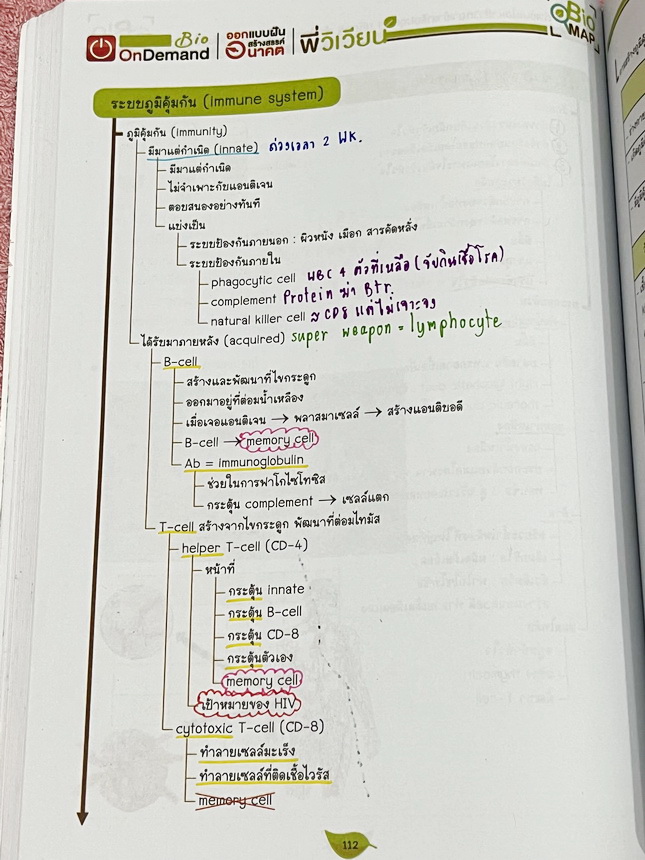 Bio OnDemand
ออกแบบฝัน สร้างสรรค์ อนาคต
พี่วิเวียน
Bio MAP
ระบบภูมิคุ้มกัน (immune system)
ภูมิคุ้มกัน (immunity)
มีมาแต่กำเนิด (innate) ด่วงเวลา 2 WK.
มีมาแต่กำเนิด
ไม่จำเพาะกับแอนติเจน
ตอบสนองอย่างทันที
แบ่งเป็น
ระบบป้องกันภายนอก : ผิวหนัง เมือก สารคัดหลั่ง
ระบบป้องกันภายใน
phagocytic cell WBC 4 ตัวที่เหลือ (จับกินเชื้อโรค)
complement Protein ฆ่า Btr.
natural killer cell ≈ CD8 แต่ไม่เจาะจง
ได้รับมาภายหลัง (acquired) super weapon = lymphocyte
B-cell
สร้างและพัฒนาที่ไขกระดูก
ออกมาอยู่ที่ต่อมน้ำเหลือง
เมื่อเจอแอนติเจน → พลาสมาเซลล์ → สร้างแอนติบอดี
B-cell → memory cell
Ab = immunoglobulin
ช่วยในการฟาโกไซโทซิส
กระตุ้น complement → เซลล์แตก
T-cell สร้างจากไขกระดูก พัฒนาที่ต่อมไทมัส
helper T-cell (CD-4)
หน้าที่
กระตุ้น innate
กระตุ้น B-cell
กระตุ้น CD-8
กระตุ้นตัวเอง
memory cell
เป้าหมายของ HIV
cytotoxic T-cell (CD-8)
ทำลายเซลล์มะเร็ง
ทำลายเซลล์ที่ติดเชื้อไวรัส
memory cell
112